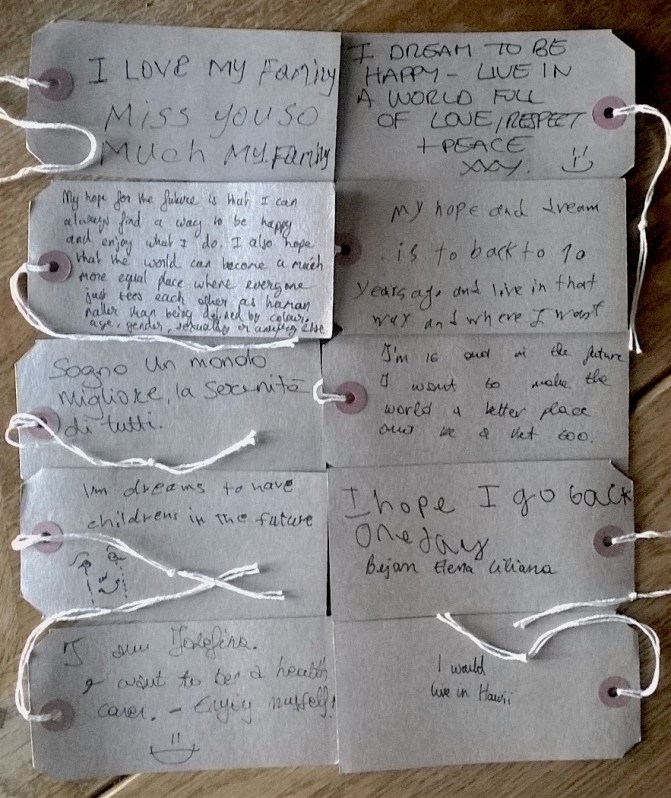 I LOVE MY Family
Miss you so
Much My Family
I DREAM TO BE
HAPPY - LIVE IN
A WORLD FULL
OF LOVE, RESPECT
+ PEACE
XXXY.
My hope for the future is that I can
always find a way to be happy
and enjoy what I do. I also hope
that the world can become a much
more equal place where everyone
just sees each other as human
rather than being defined by colour,
age, gender, sexuality or anything else
My hope and dream
is to back to 10
years ago and live in that
way and where I want
Sogno un mondo
migliore, la serenità
di tutti.
I'm 16 and in the future
I want to make the
world a better place
and be a vet too.
I'm dreams to have
childrens in the future
I hope I go back
One day
Bejan Elena Liliana
I am Josefina.
I want to be a health
carer. - Enjoy myself!
I would
live in Hawii